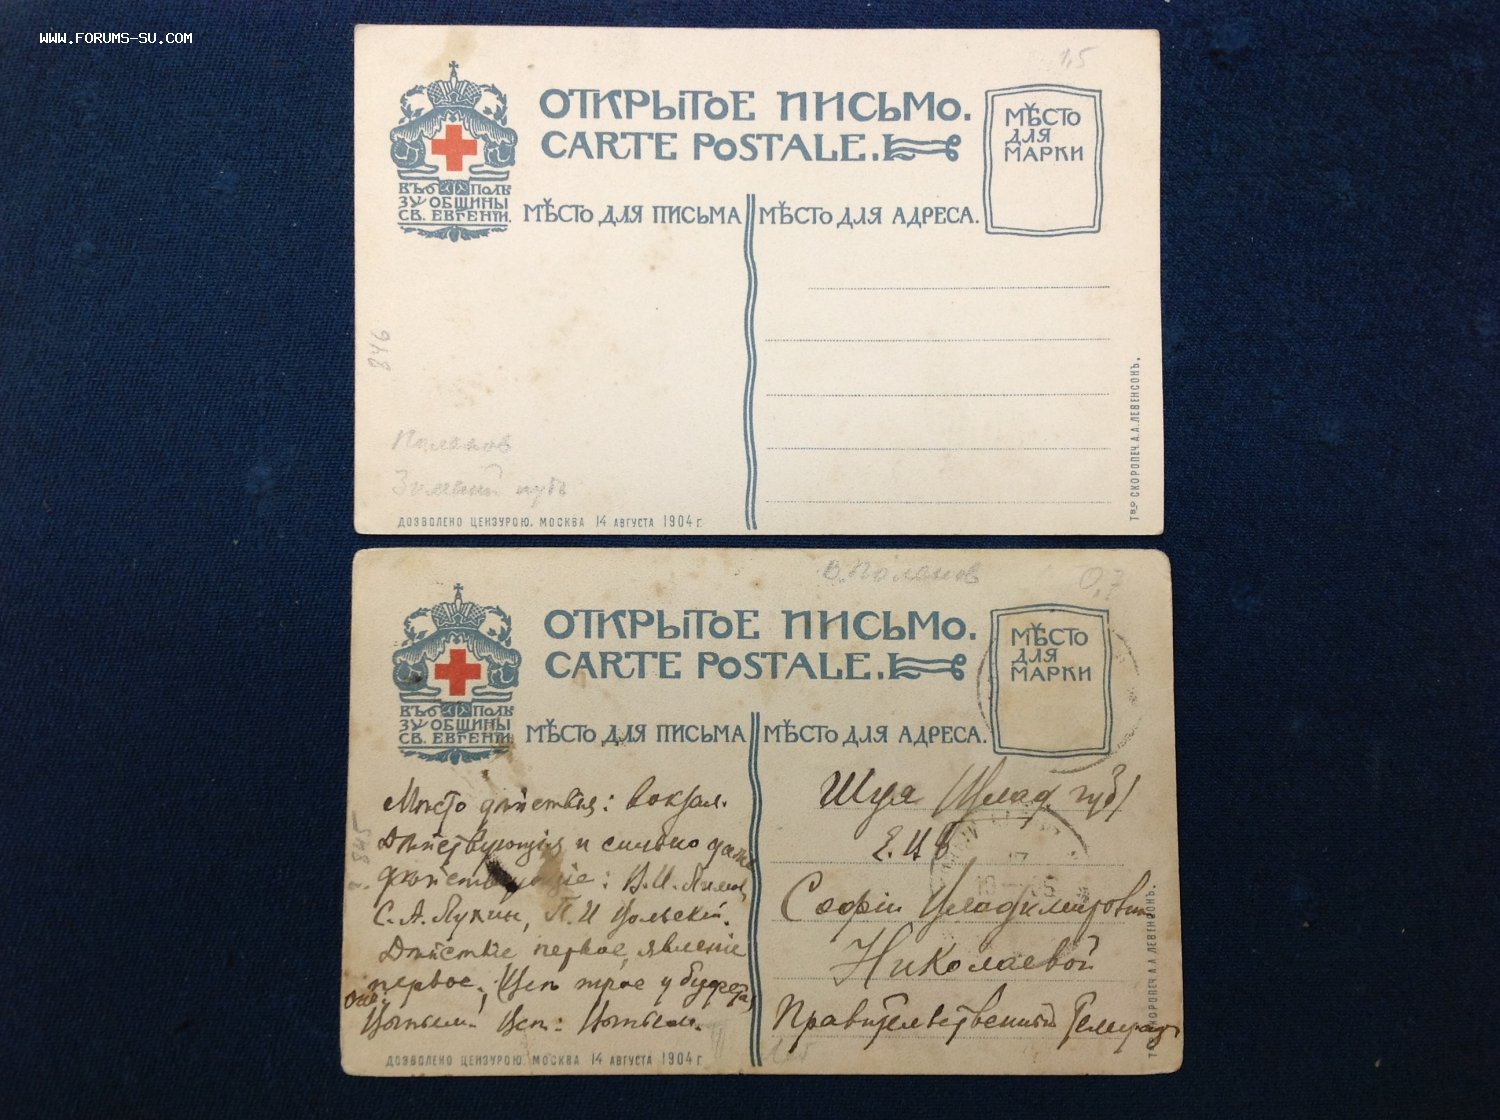 WWW.FORUMS-SU.COM
1,5
ОТКРЫТОЕ ПИСЬМО.
CARTE POSTALE.
МѢСТО
ДЛЯ
МАРКИ
ВЪ ПОЛЬ
ЗУ ОБЩИНЫ
СВ. ЕВГЕНІИ.
МѢСТО ДЛЯ ПИСЬМА
МѢСТО ДЛЯ АДРЕСА.
846
Поленов
Зимений путь
ДОЗВОЛЕНО ЦЕНЗУРОЮ. МОСКВА 14 АВГУСТА 1904 г.
Т-во СКОРОПЕЧ. А.А.ЛЕВЕНСОНЪ.
В. Поленов
0,7
ОТКРЫТОЕ ПИСЬМО.
CARTE POSTALE.
МѢСТО
ДЛЯ
МАРКИ
ВЪ ПОЛЬ
ЗУ ОБЩИНЫ
СВ. ЕВГЕНІИ.
МѢСТО ДЛЯ ПИСЬМА
МѢСТО ДЛЯ АДРЕСА.
845
Мѣсто дѣйствія: вокзал.
Дѣйствующія и сильно даже
дѣйствующіе: В.И.
С.А. Лукин, П.И
Дѣйствіе первое, явленіе
первое. Всѣ трое у буфета,
Шуя Влад. губ
Е. В
Софіи Владимировнѣ
Николаевой
Правительственный Телеграф
ДОЗВОЛЕНО ЦЕНЗУРОЮ. МОСКВА 14 АВГУСТА 1904 г.
Т-во СКОРОПЕЧ. А.А.ЛЕВЕНСОНЪ.